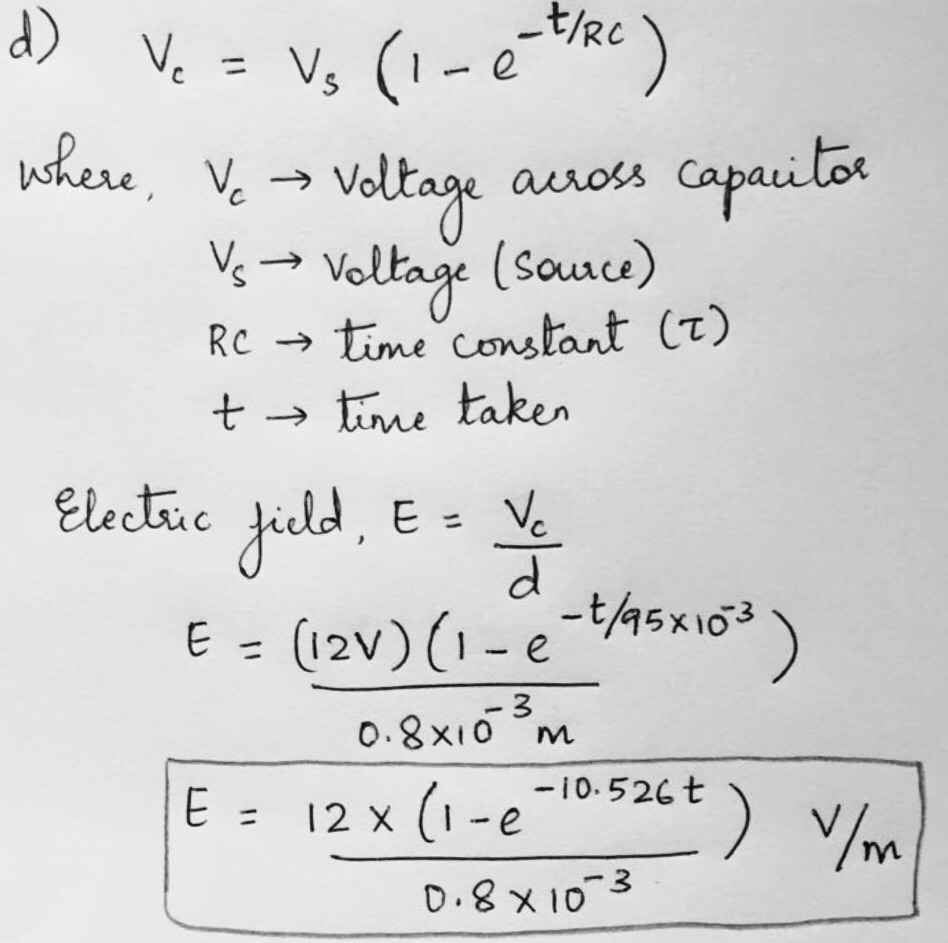 d) V_c = V_s (1 - e^{-t/RC})
where, V_c → Voltage across capacitor
V_s → Voltage (Source)
RC → time constant (τ)
t → time taken
Electric field, E = V_c / d
E = (12V) (1 - e^{-t/95×10^{-3}}) / 0.8×10^{-3} m
E = 12 × (1 - e^{-10.526t}) / 0.8 × 10^{-3} V/m